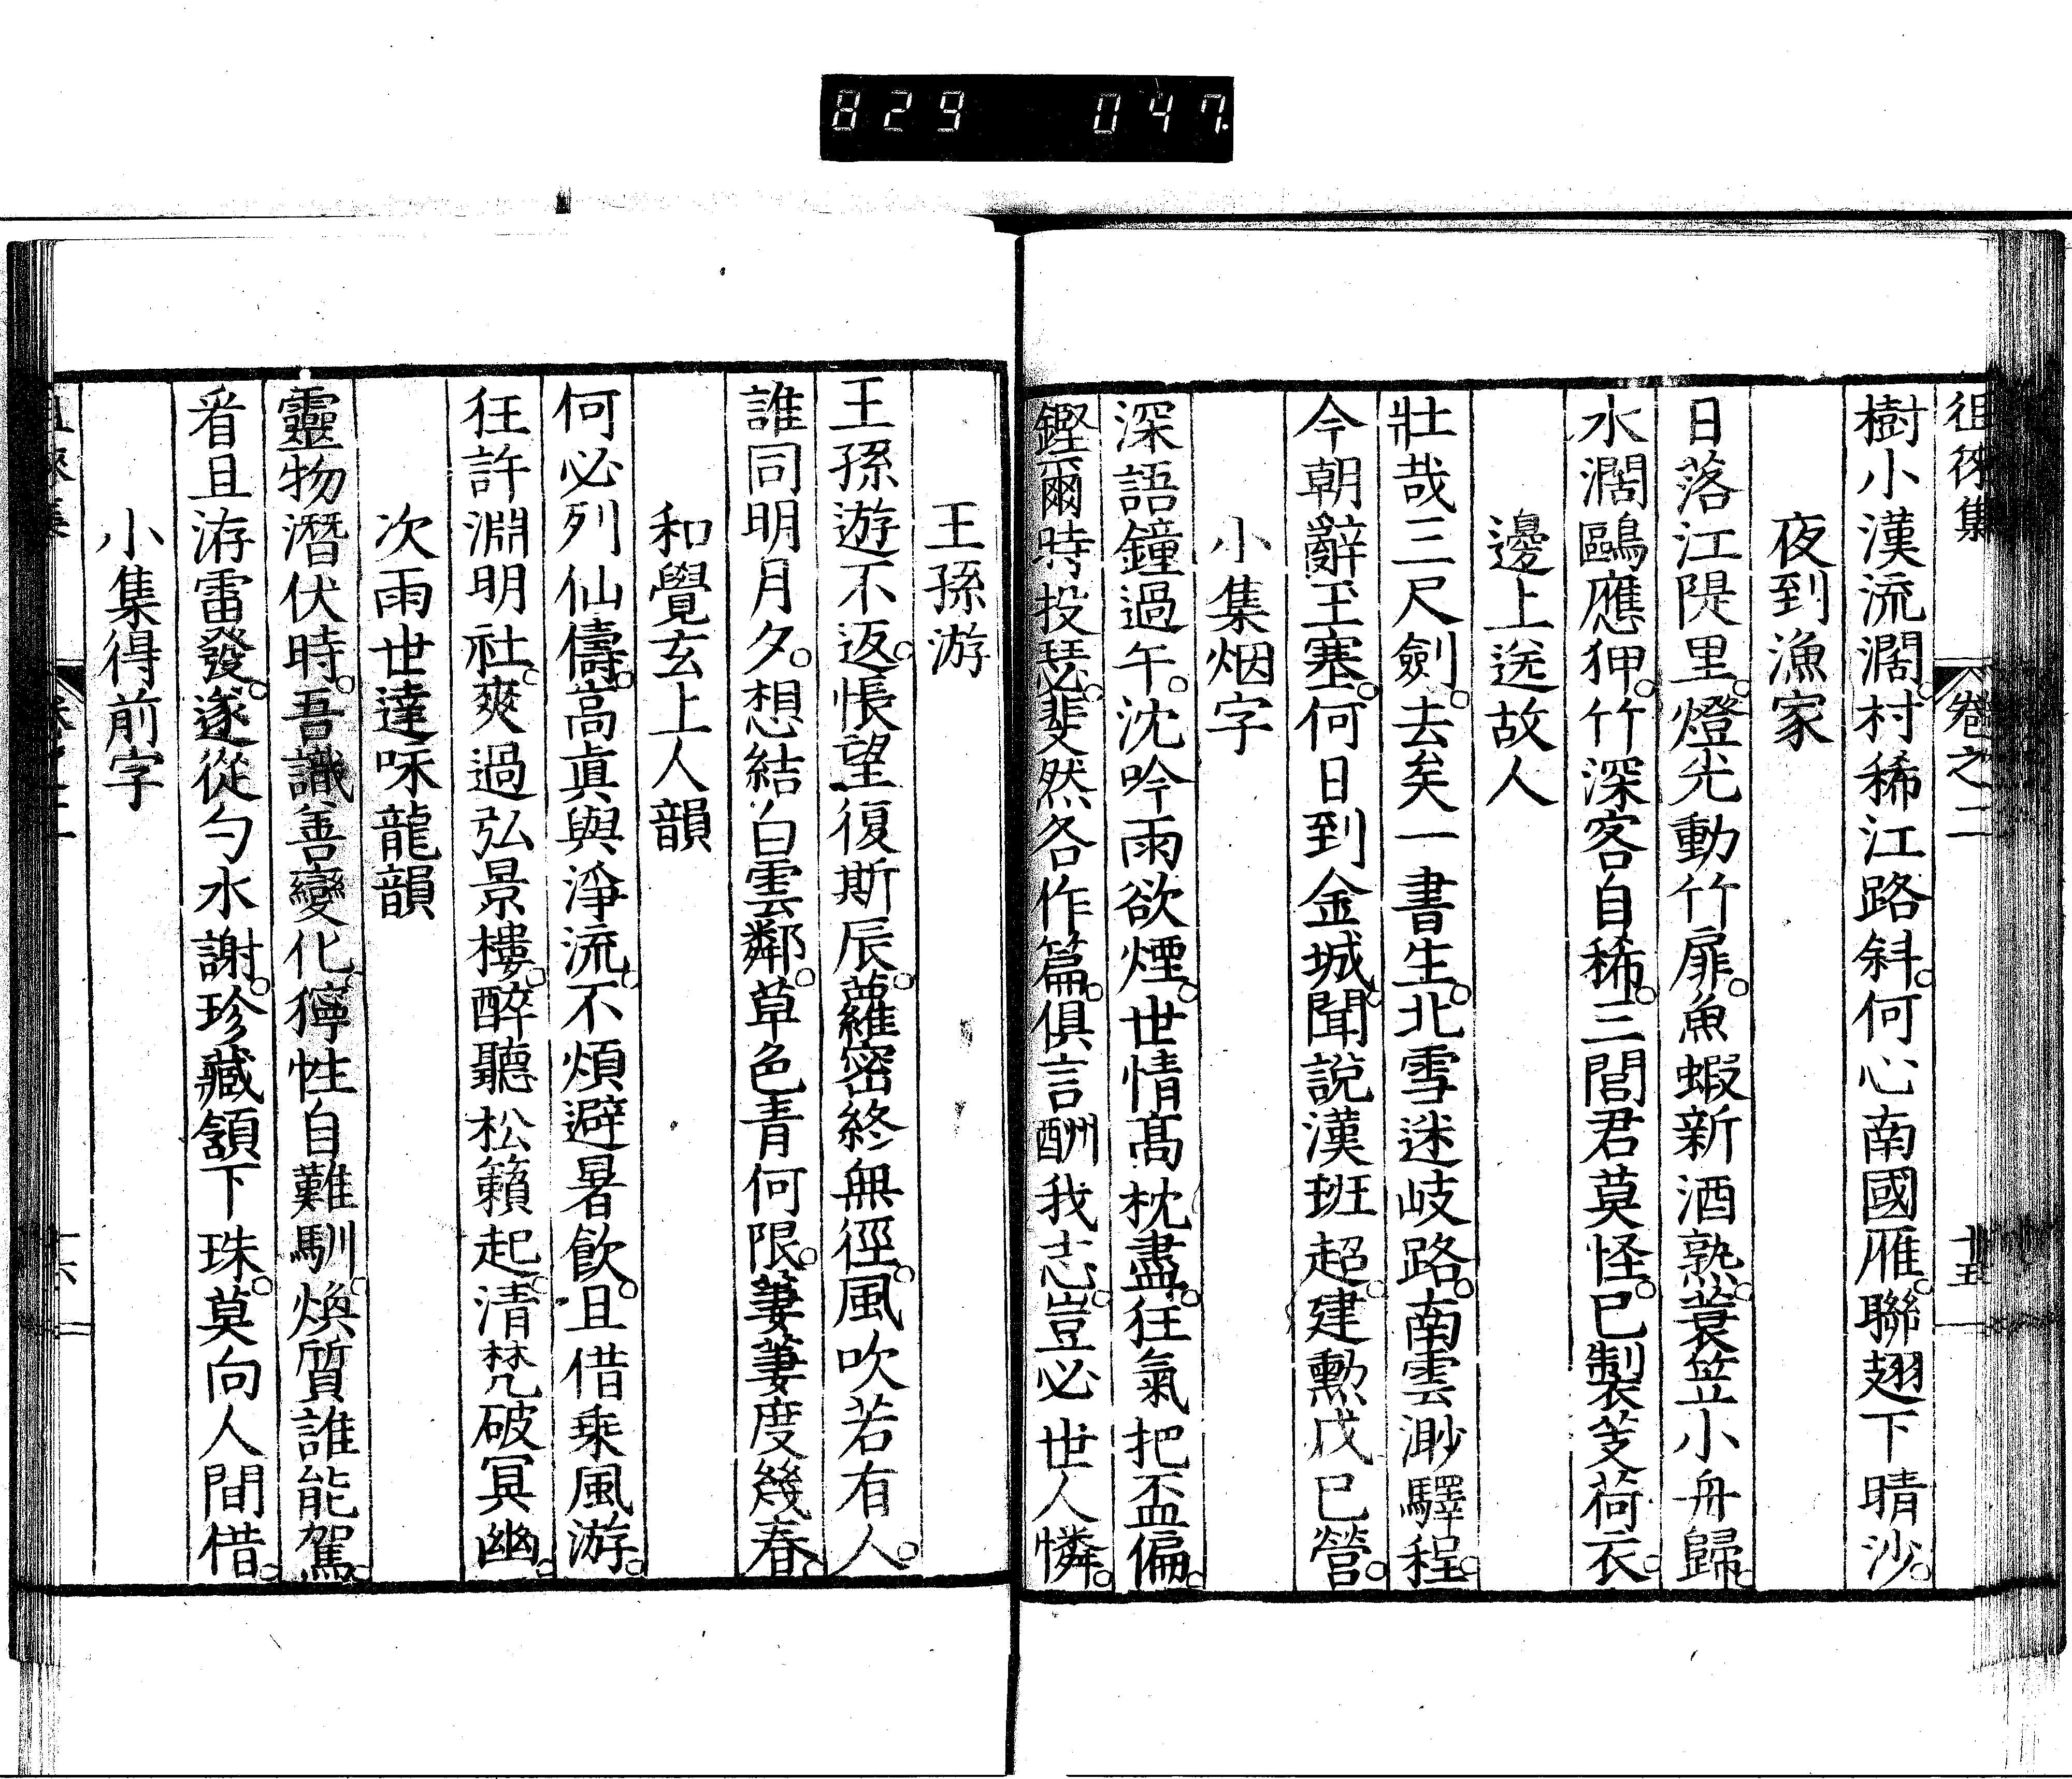 829 047.
徂徠集 卷之二 十五
樹小漢流濶。村稀江路斜。何心南國雁。聯翅下晴沙。
夜到漁家
日落江隄里。燈光動竹扉。魚蝦新酒熟。蓑笠小舟歸。
水濶鷗應狎。竹深客自稀。三閭君莫怪。已製芰荷衣。
邊上送故人
壯哉三尺劍。去矣一書生。北雪迷岐路。南雲渺驛程。
今朝辭玉塞。何日到金城。聞說漢班超。建勲戊已營。
小集烟字
深語鐘過午。沈吟雨欲煙。世情髙枕盡。狂氣把盃偏。
鏗爾時投瑟。斐然各作篇。俱言酬我志。豈必世人憐。
王孫游
王孫遊不返。悵望復斯辰。蘿密終無徑。風吹若有人。
誰同明月夕。想結白雲鄰。草色青何限。萋萋度幾春。
和覺玄上人韻
何必列仙儔。高眞與淨流。不煩避暑飲。且借乗風游。
狂許淵明社。爽過弘景樓。醉聽松籟起。清梵破冥幽。
次雨世達咏龍韻
靈物潛伏時。吾識善變化。獰性自難馴。煥質誰能駕。
看且洊雷發。遂從勺水謝。珍藏頷下珠。莫向人間借。
小集得前字